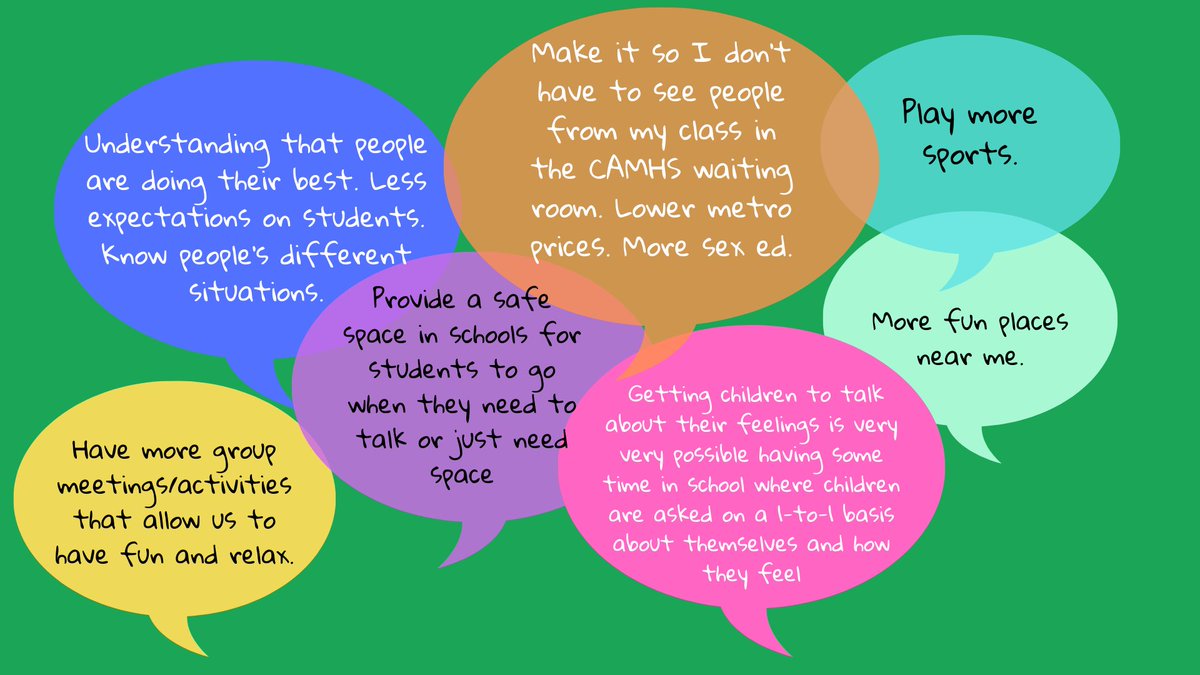 Understanding that people
are doing their best. Less
expectations on students.
Know people's different
situations.
Make it so I don't
have to see people
from my class in
the CAMHS waiting
room. Lower metro
prices. More sex ed.
Play more
sports.
More fun places
near me.
Provide a safe
space in schools for
students to go
when they need to
talk or just need
space
Have more group
meetings/activities
that allow us to
have fun and relax.
Getting children to talk
about their feelings is very
very possible having some
time in school where children
are asked on a 1-to-1 basis
about themselves and how
they feel